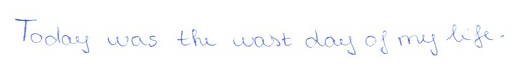 Today was the wast day of my life.